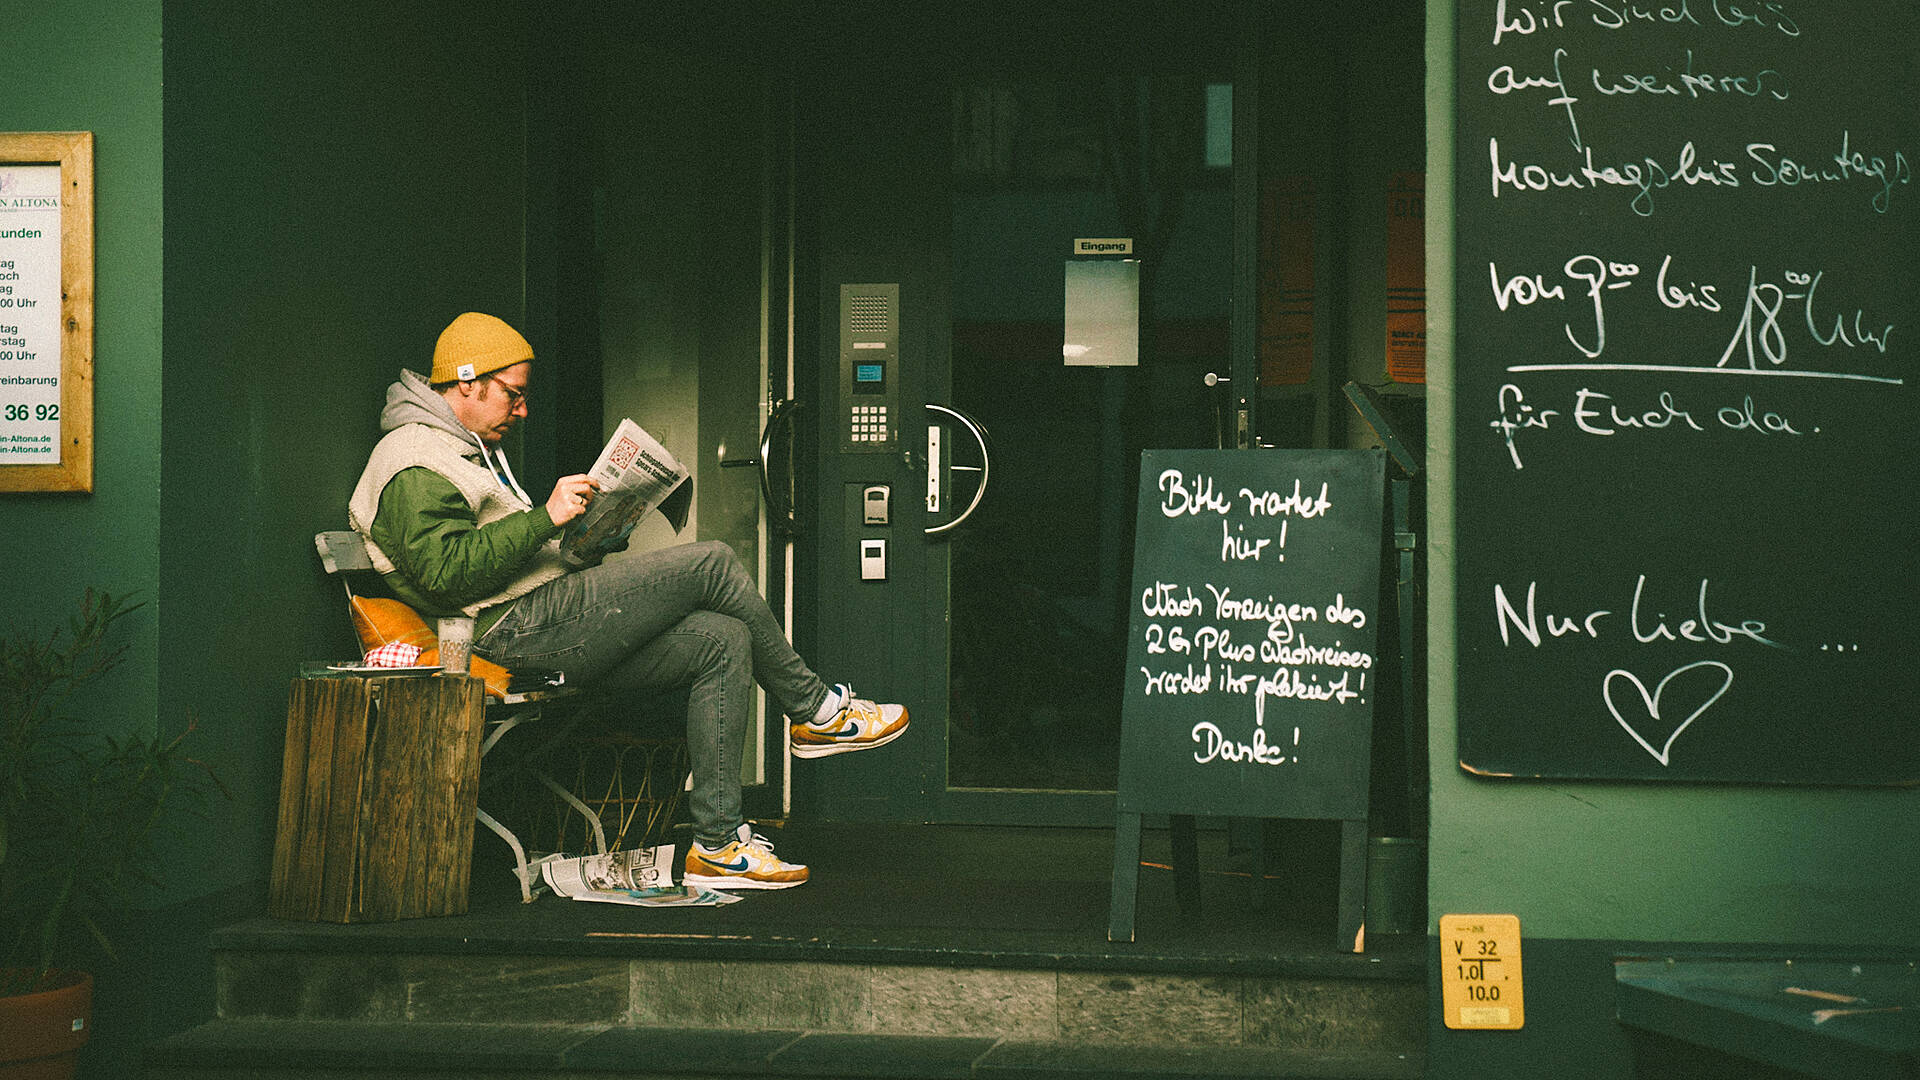 N ALTONA
unden
ag
och
ag
00 Uhr
tag
rstag
00 Uhr
reinbarung
36 92
in-Altona.de
in-Altona.de
Eingang
Bitte wartet
hier!
Nach Vorzeigen des
2G Plus Nachweises
werdet ihr plaziert!
Danke!
Wir sind bis
auf weiteres
Montags bis Sonntags
von 9⁰⁰ bis 18⁰⁰ Uhr
für Euch da.
Nur Liebe ...
V 32
1.0
10.0